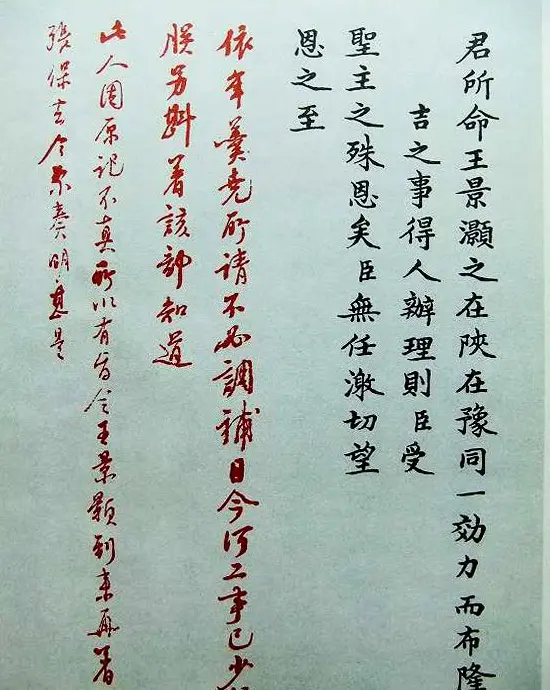 君所命王景灝之在陝在豫同一効力而布隆
吉之事得人辦理則臣受
聖主之殊恩矣臣無任激切望
恩之至
依年羹堯所請不必調補目今河工事已少
朕另斟着該部知道
此人因原記不真所以有旨令王景顥到來再着
張保去今票奏明甚是